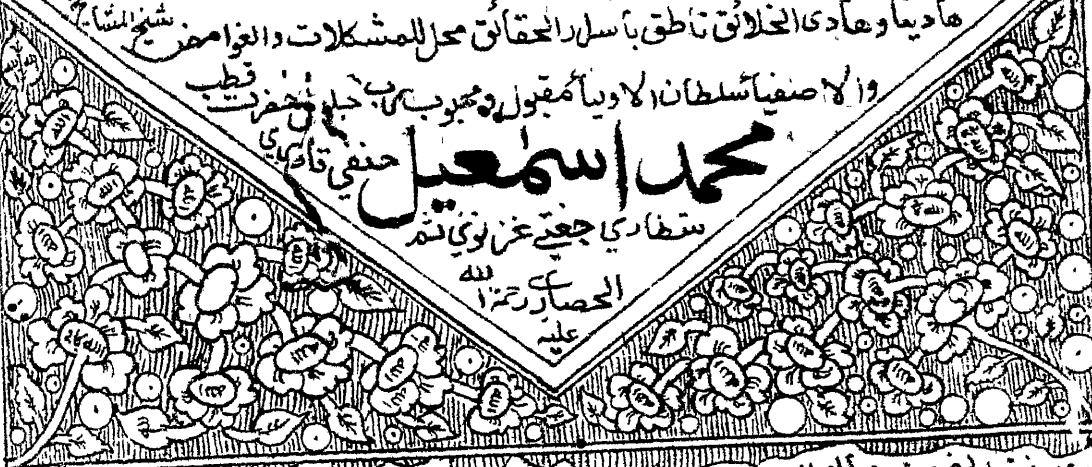 هاديا وهادى الخلائق ناطق باسرار الحقائق محل للمشكلات والغوامض شيخ المشايخ
والاصفيا سلطان الاوليا مقبول ومحبوب حضرت قطب
محمد اسمعيل حنفي قادري
شطاري چشتي غزنوي ثم
الحصاري رحمة الله
عليه